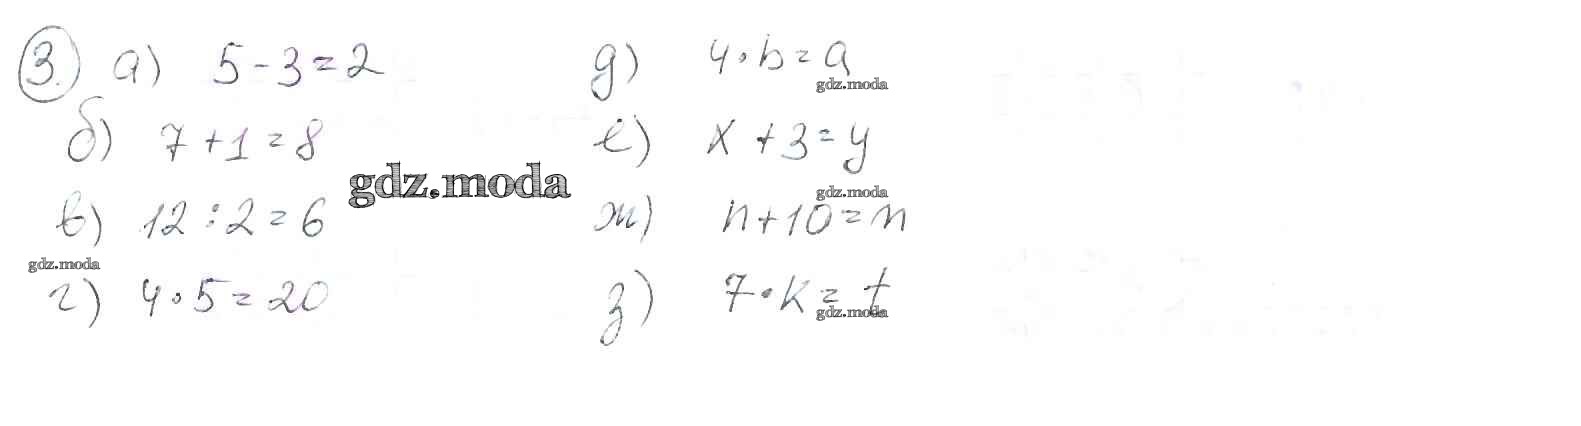 3. а) 5 - 3 = 2
б) 7 + 1 = 8
в) 12 : 2 = 6
г) 4 · 5 = 20
д) 4 · b = a
е) x + 3 = y
ж) n + 10 = m
з) 7 · k = t
gdz.moda
gdz.moda
gdz.moda
gdz.moda
gdz.moda